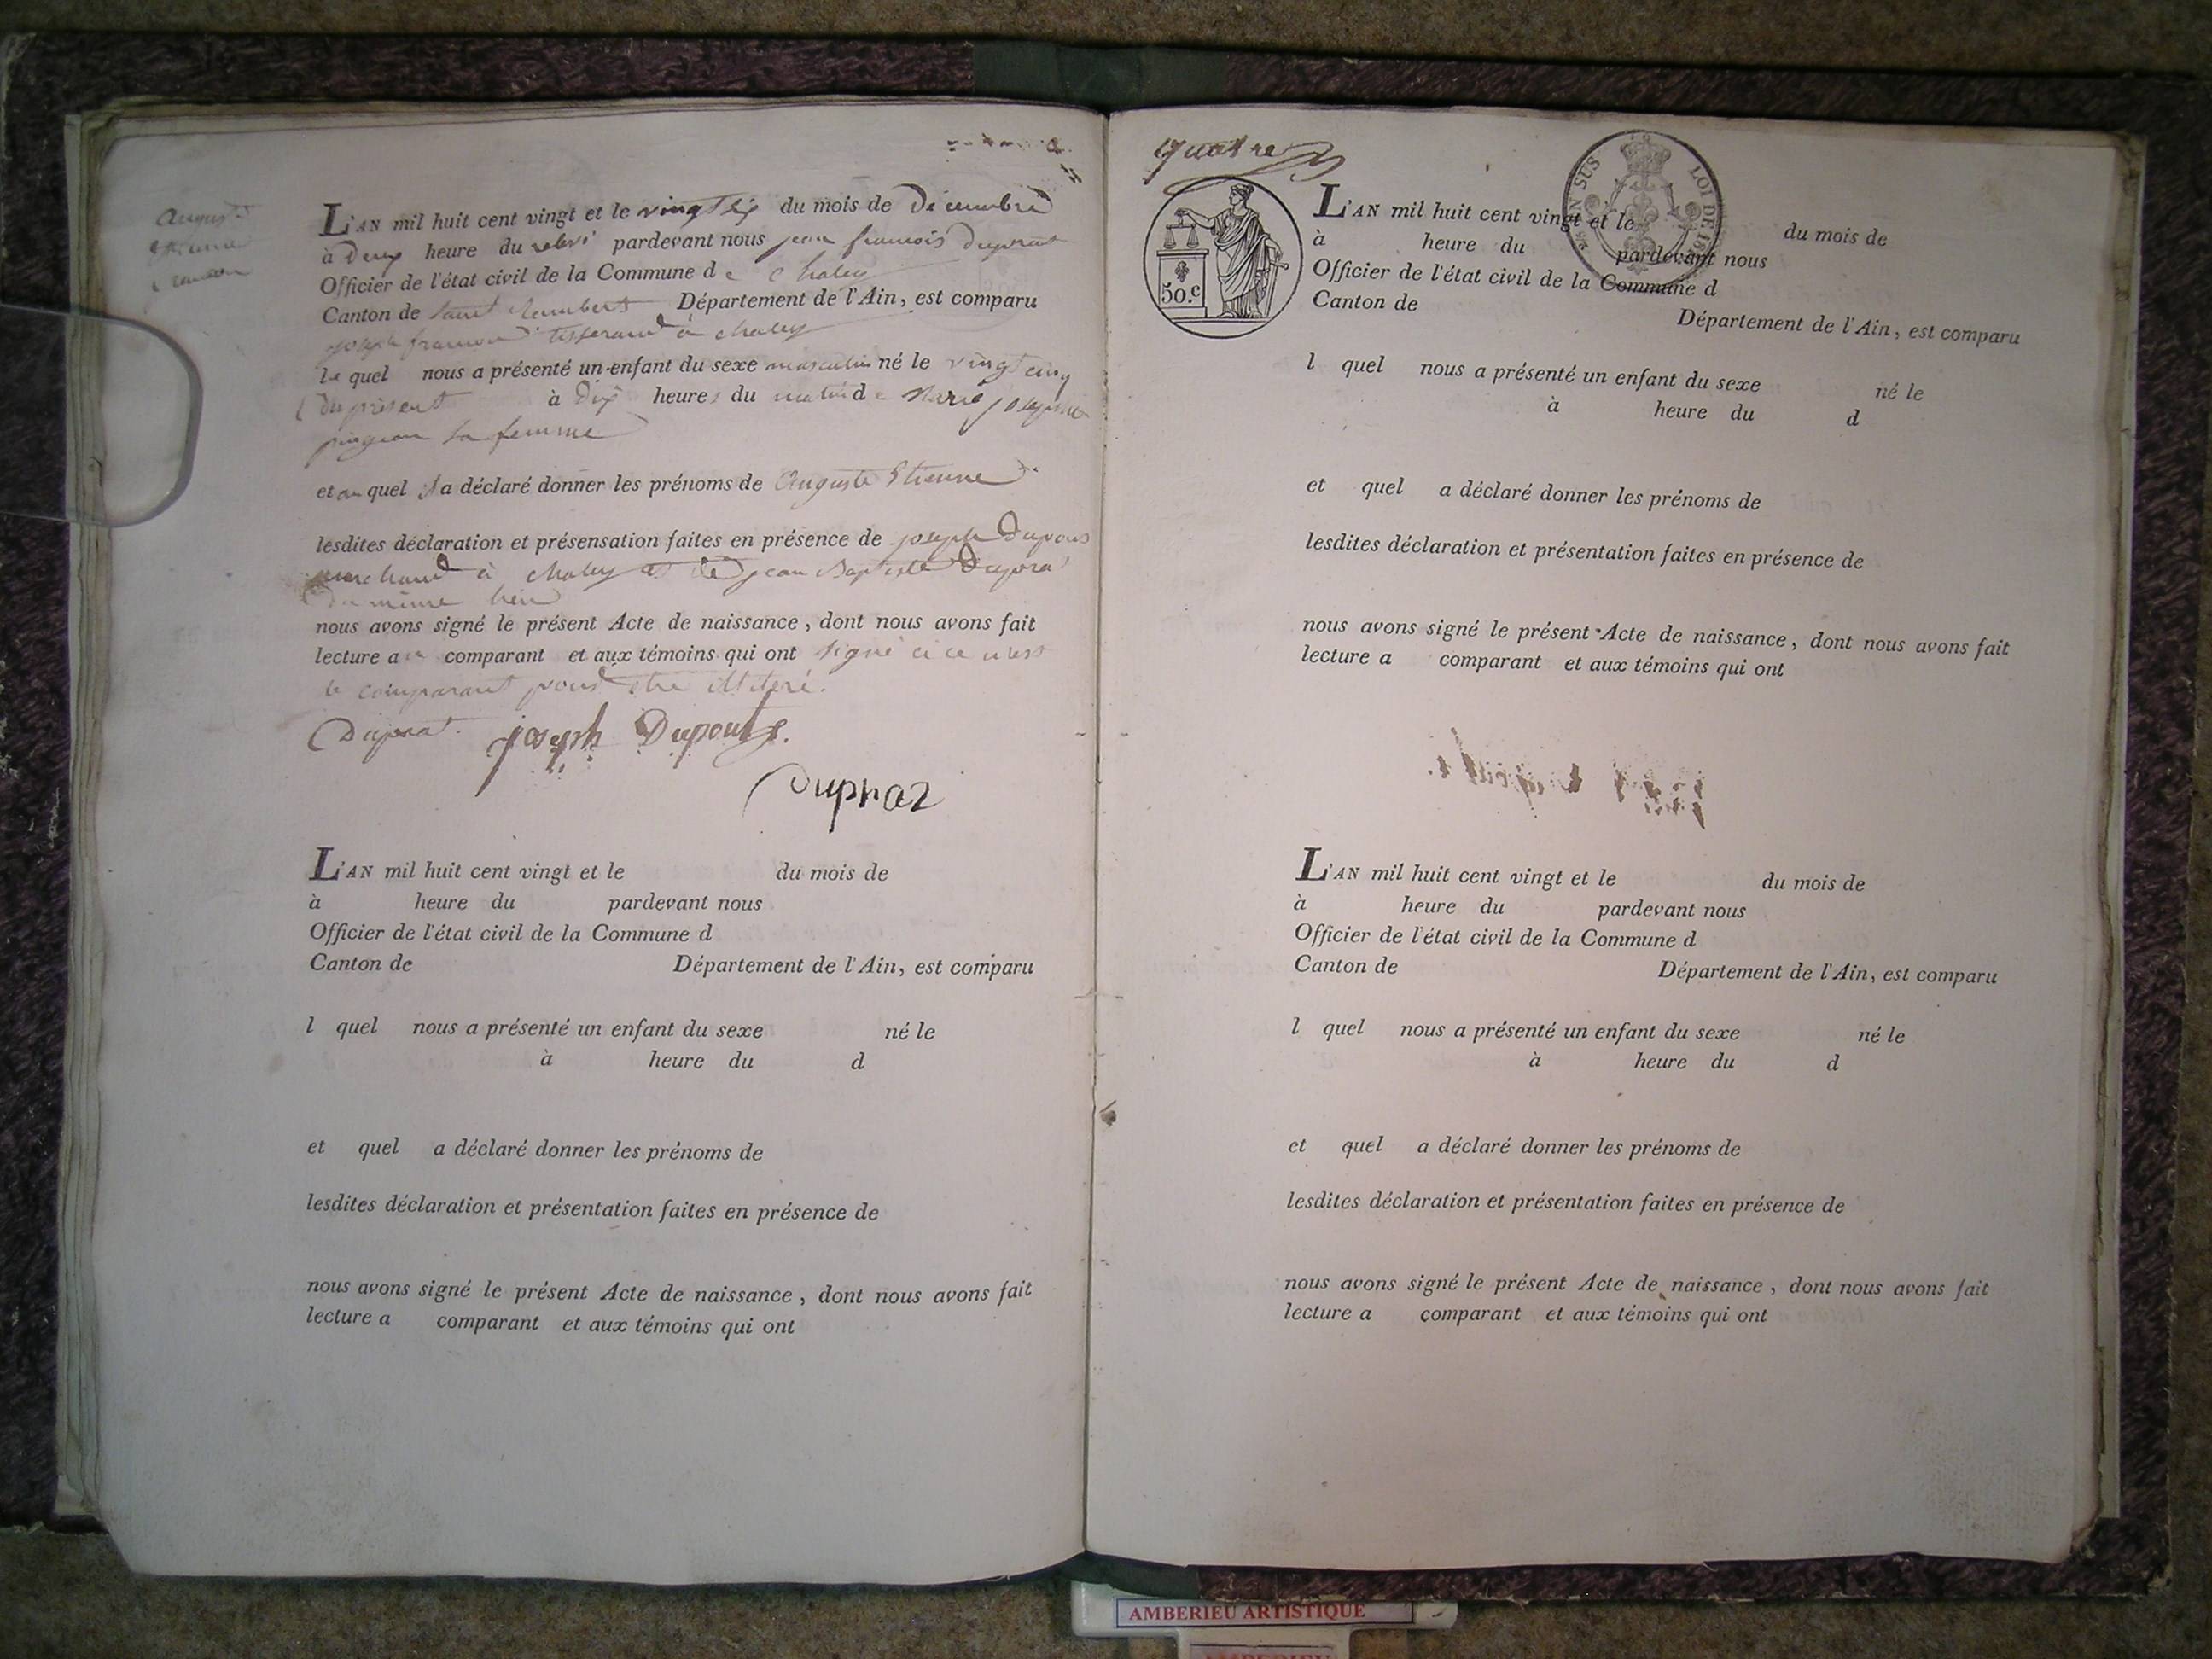 August
L'AN mil huit cent vingt et le vingt six du mois de Décembre
à deux heure du pardevant nous jean francois duprat
Officier de l'état civil de la Commune de Chaley
Canton de saint Rambert Département de l'Ain, est comparu
joseph tisserand à chaley
le quel nous a présenté un enfant du sexe masculin né le vingt cinq
du présent à Dix heures du matin de Marie josephte
sa femme
et au quel il a déclaré donner les prénoms de Auguste Etienne
lesdites déclaration et présensation faites en présence de joseph Dupont
marchand à chaley et de jean Baptiste Duprat
du même lieu
nous avons signé le présent Acte de naissance, dont nous avons fait
lecture au comparant et aux témoins qui ont signé
le comparant pour être illiteré.
Duprat. joseph Dupont
Dupraz
L'AN mil huit cent vingt et le du mois de
à heure du pardevant nous
Officier de l'état civil de la Commune d
Canton de Département de l'Ain, est comparu
l quel nous a présenté un enfant du sexe né le
à heure du d
et quel a déclaré donner les prénoms de
lesdites déclaration et présentation faites en présence de
nous avons signé le présent Acte de naissance, dont nous avons fait
lecture a comparant et aux témoins qui ont
quatre
50.c
SUS LOI DE
L'AN mil huit cent vingt et le du mois de
à heure du pardevant nous
Officier de l'état civil de la Commune d
Canton de Département de l'Ain, est comparu
l quel nous a présenté un enfant du sexe né le
à heure du d
et quel a déclaré donner les prénoms de
lesdites déclaration et présentation faites en présence de
nous avons signé le présent Acte de naissance, dont nous avons fait
lecture a comparant et aux témoins qui ont
L'AN mil huit cent vingt et le du mois de
à heure du pardevant nous
Officier de l'état civil de la Commune d
Canton de Département de l'Ain, est comparu
l quel nous a présenté un enfant du sexe né le
à heure du d
et quel a déclaré donner les prénoms de
lesdites déclaration et présentation faites en présence de
nous avons signé le présent Acte de naissance, dont nous avons fait
lecture a comparant et aux témoins qui ont
AMBERIEU ARTISTIQUE
AMBERIEU